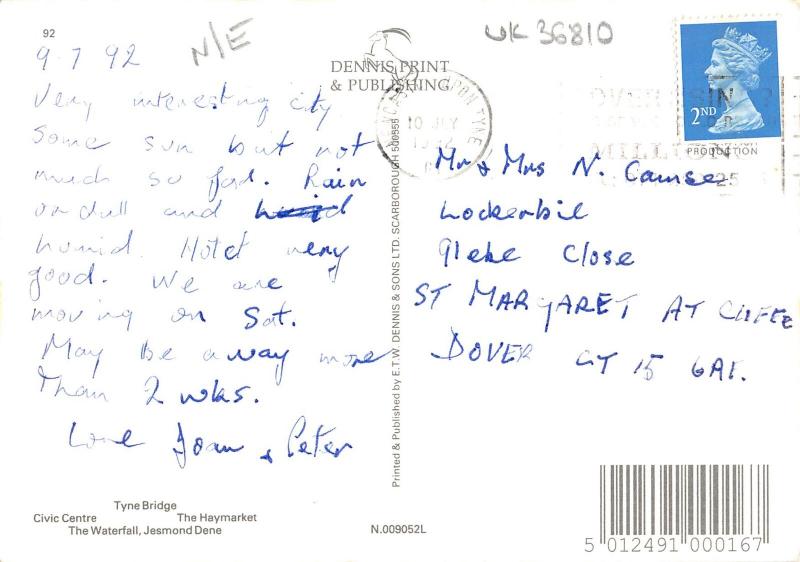 92
9.7.92
N/E
UK 36810
DENNIS PRINT
& PUBLISHING
Very interesting city
Some sun but not
much so far. Rain
or dull and
humid. Hotel very
good. We are
moving on Sat.
May be away more
than 2 wks.
Love Joan & Peter
UPON TYNE
10 JLY
1992
2ND
PRODUCTION
MILL
25
Mr & Mrs N.
Lockerbie
Glebe Close
ST MARGARET AT CLIFFE
DOVER CT 15 6AL.
Printed & Published by E.T.W. DENNIS & SONS LTD. SCARBOROUGH 500555
Tyne Bridge
Civic Centre The Haymarket
The Waterfall, Jesmond Dene
N.009052L
5 012491 000167